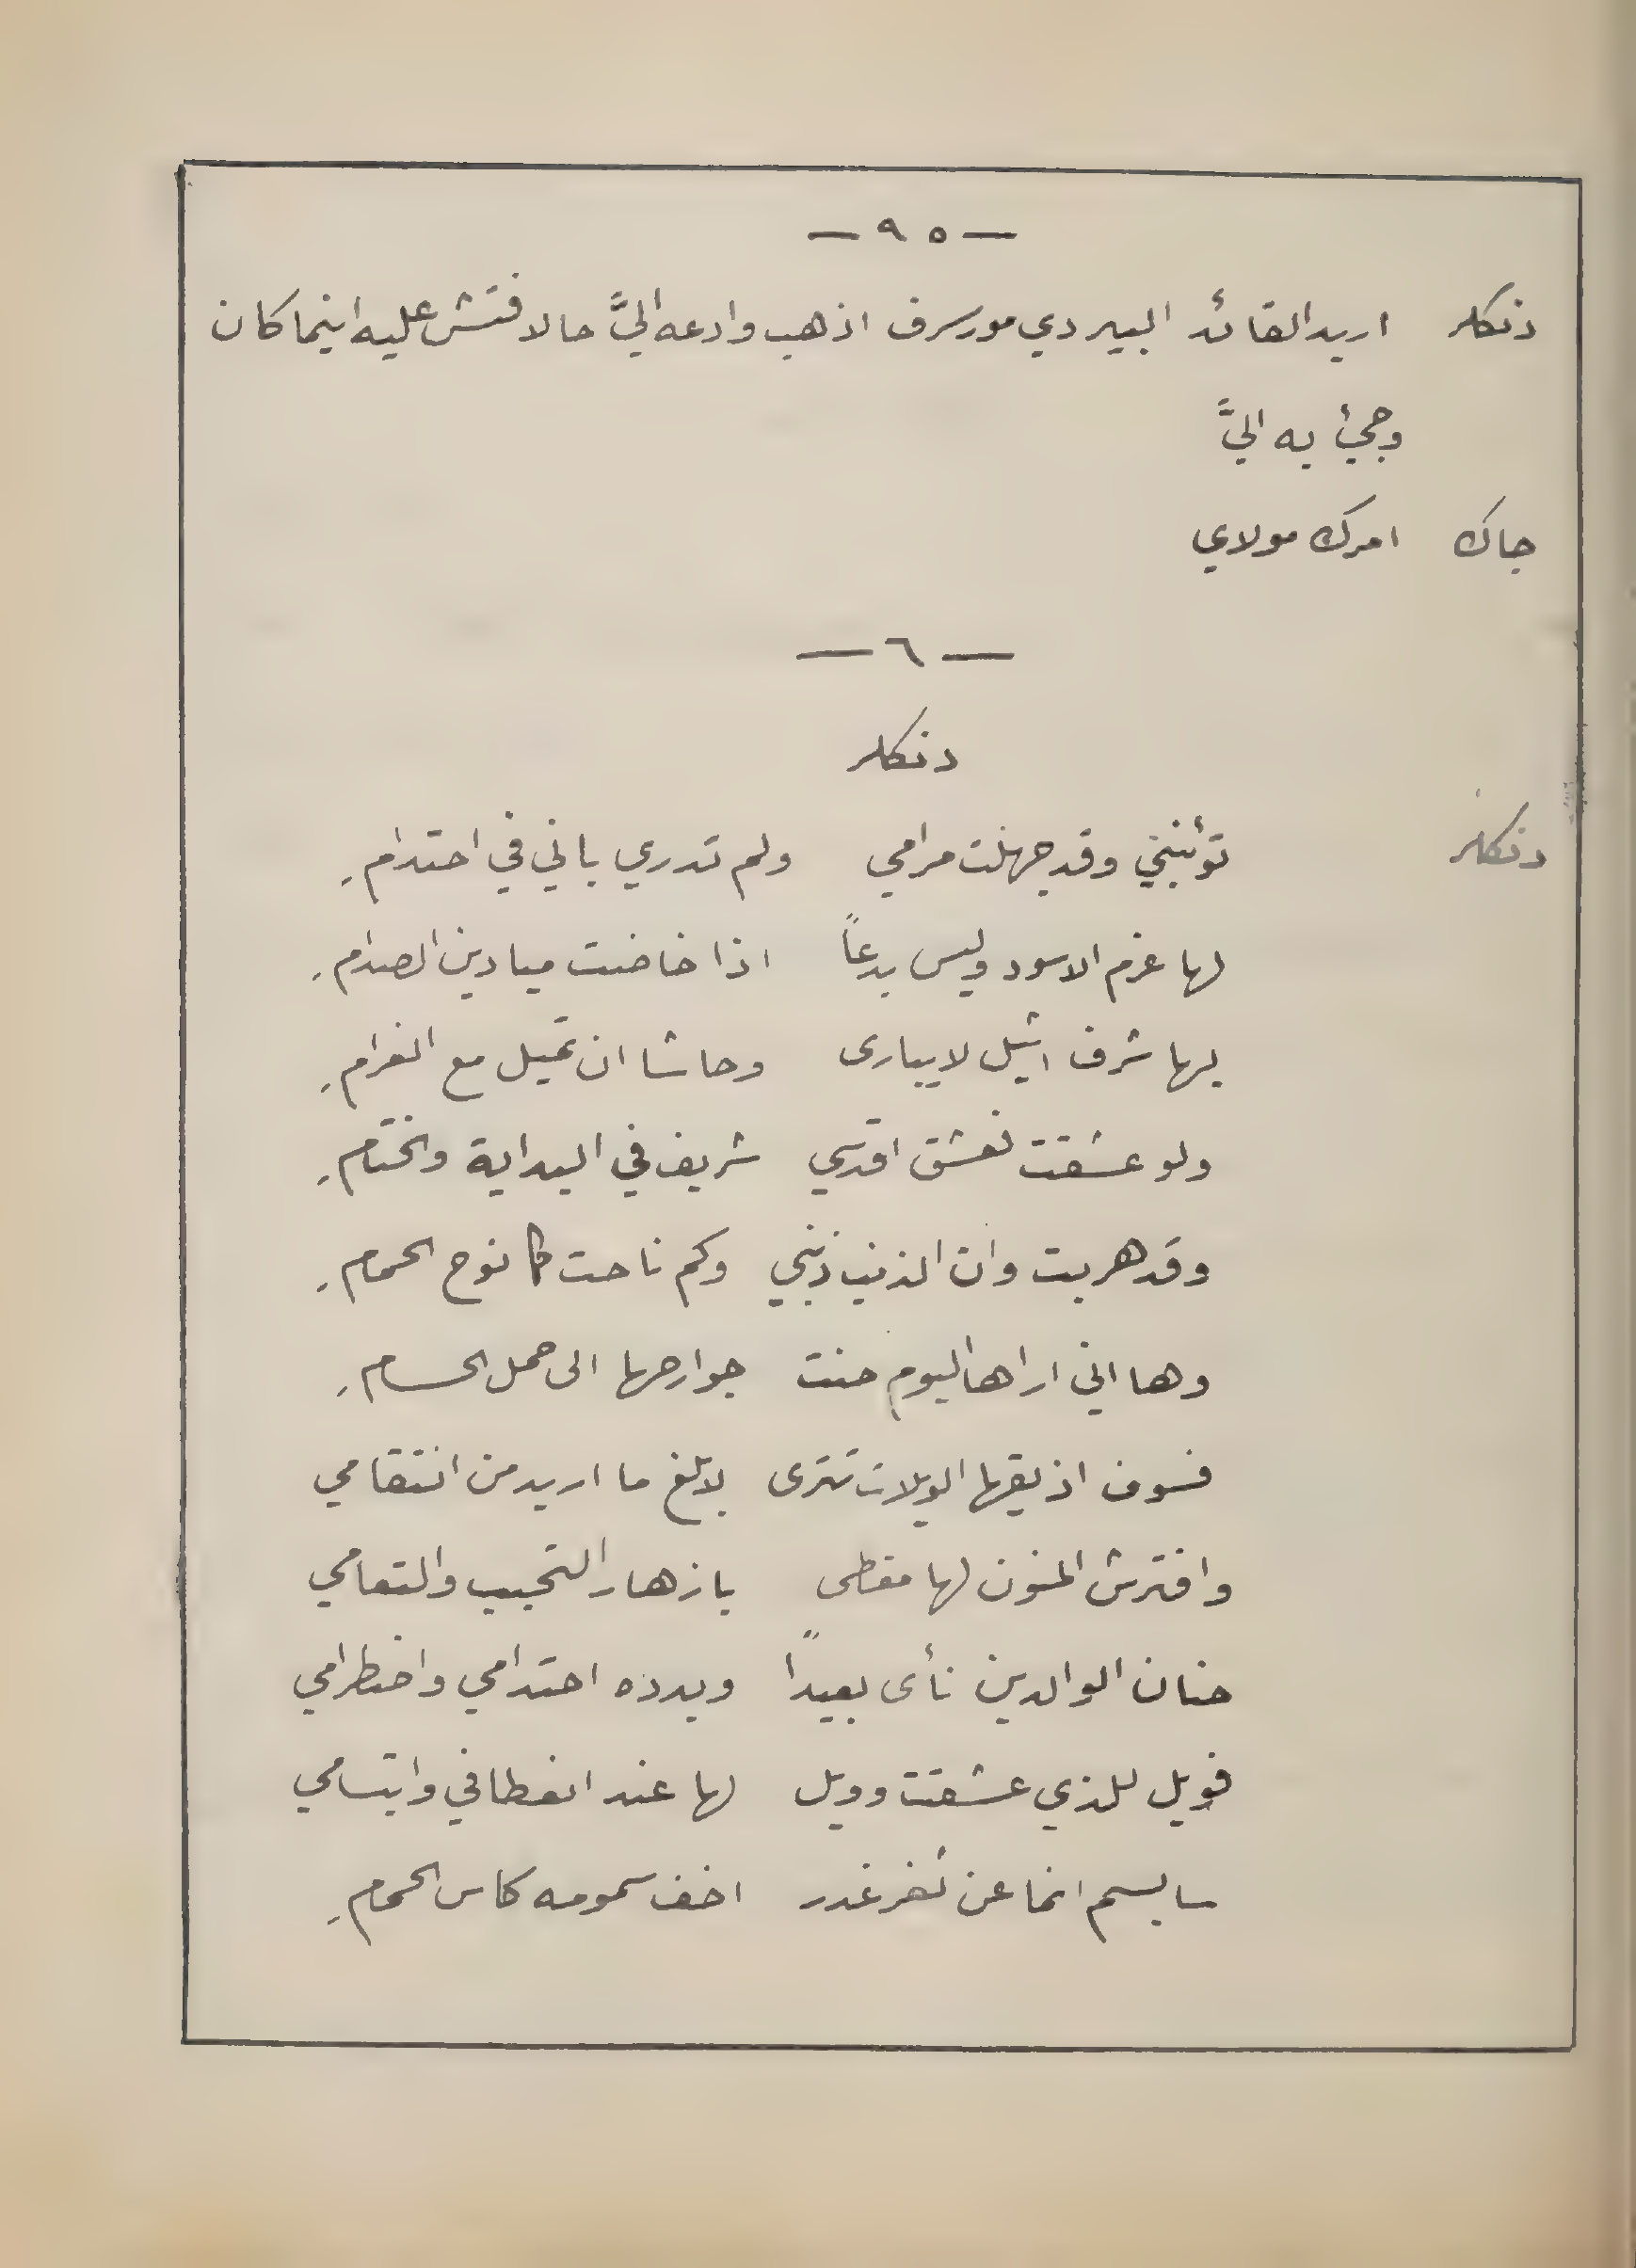 — ٩٥ —
دنكلر اريد القائد البير دي مورسرف اذهب وادعه اليَّ حالا فتش عليه اينما كان
وجيءْ به اليَّ
جاك امرك مولاي
— ٦ —
دنكلر
دنكلر تؤنبني وقد جهلت مرامي ولم تدري باني في احتدامِ
لها عزم الاسود وليس بدعاً اذا خاضت ميادين الصدامِ
لها شرف اثيل لا يبارى وحاشا ان تميل مع الغرامِ
ولو عشقت لعشق اقدسي شريف في البداية والختامِ
وقد هربت وان الذنب ذنبي وكم ناحت كما نوح الحمامِ
وها اني اراها اليوم حنت جوارحها الى حمل الحسامِ
فسوف اذيقها الويلات تترى لابلغ ما اريد من انتقامي
وافترش المنون لها مغطى بازهار التحبب والتعامي
حنان الوالدين نأى بعيداً وبدده احتدامي واضطرامي
فويل للذي عشقت وويل لها عند انعطافي وابتسامي
سابسم انما عن ثغر غدر اخف سمومه كاس الحمامِ